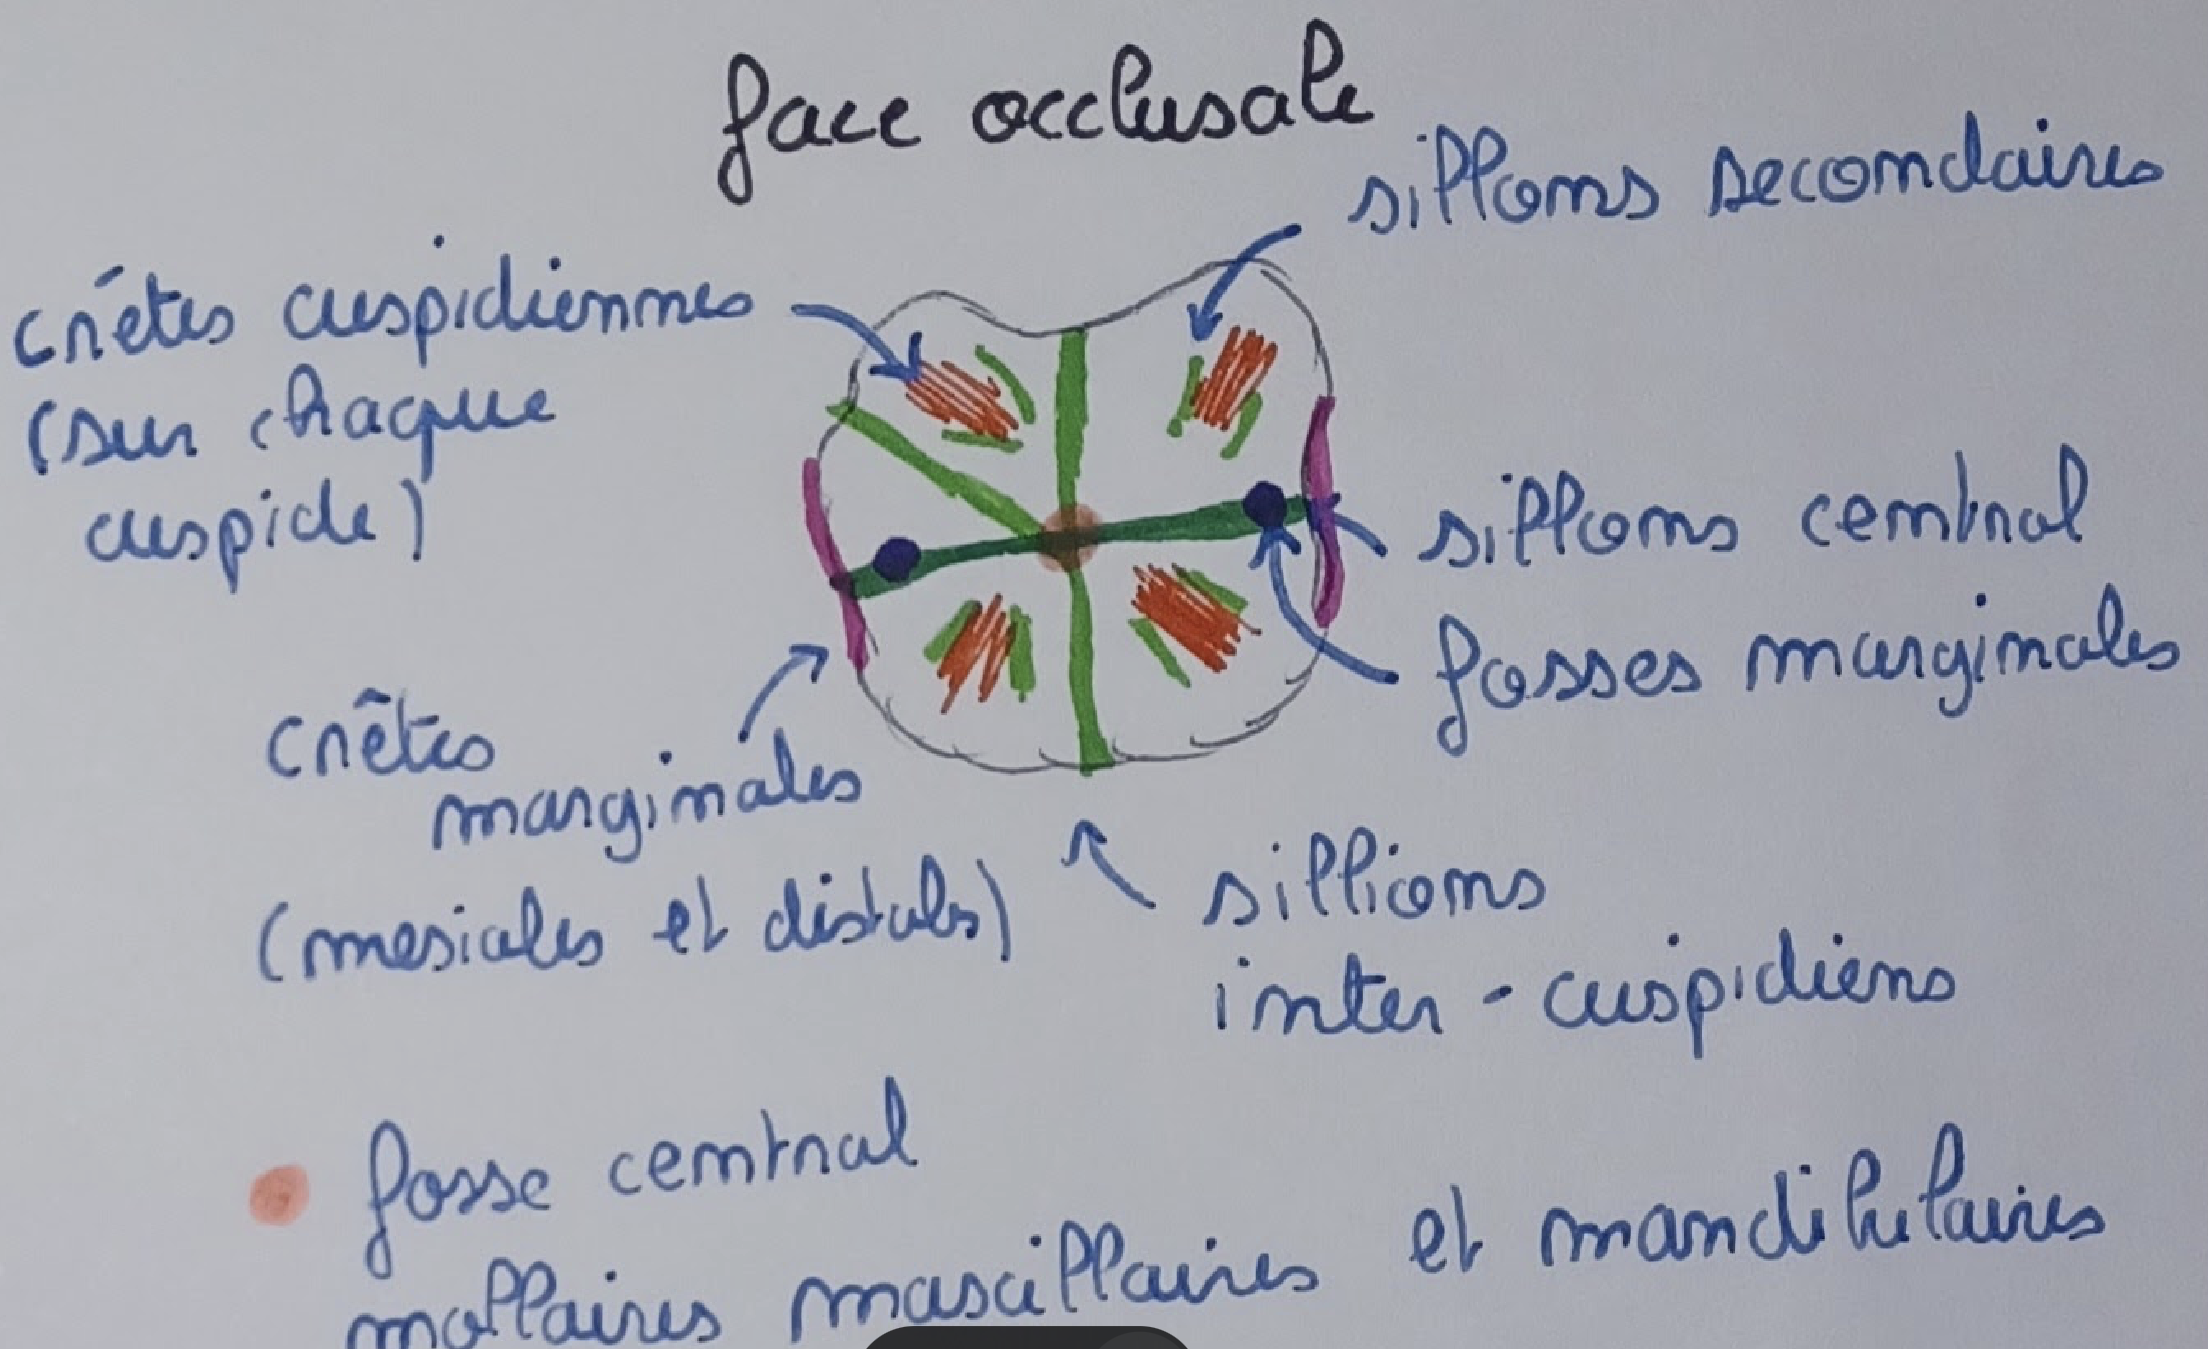 face occlusale
sillons secondaires
crêtes cuspidiennes
(sur chaque
cuspide)
sillons central
fosses marginales
crêtes
marginales
(mesiales et distales)
sillions
inter-cuspidiens
fosse central
mollaires maxillaires et mandibulaires